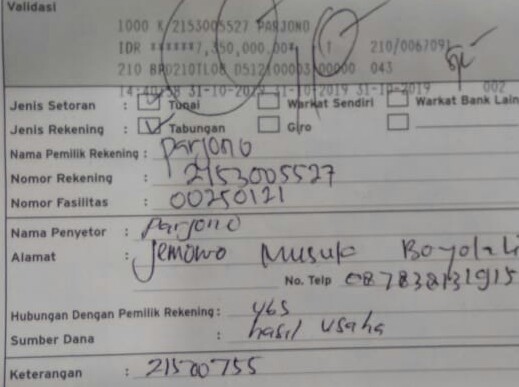 Validasi
1000 K 2153005527 PARJONO
IDR ******7,350,000.00* 1 210/0067091
210 0512100003 00000 043
14:40:58 31-10-2019 31-10-2019 31-10-2019 002
Jenis Setoran : Tunai Warkat Sendiri Warkat Bank Lain
Jenis Rekening : Tabungan Giro
Nama Pemilik Rekening : Parjono
Nomor Rekening : 2153005527
Nomor Fasilitas : 00250121
Nama Penyetor : Parjono
Alamat : Jemowo Musuk Boyolali
No. Telp 087838131915
Hubungan Dengan Pemilik Rekening : YBS
Sumber Dana : hasil usaha
Keterangan : 21500755